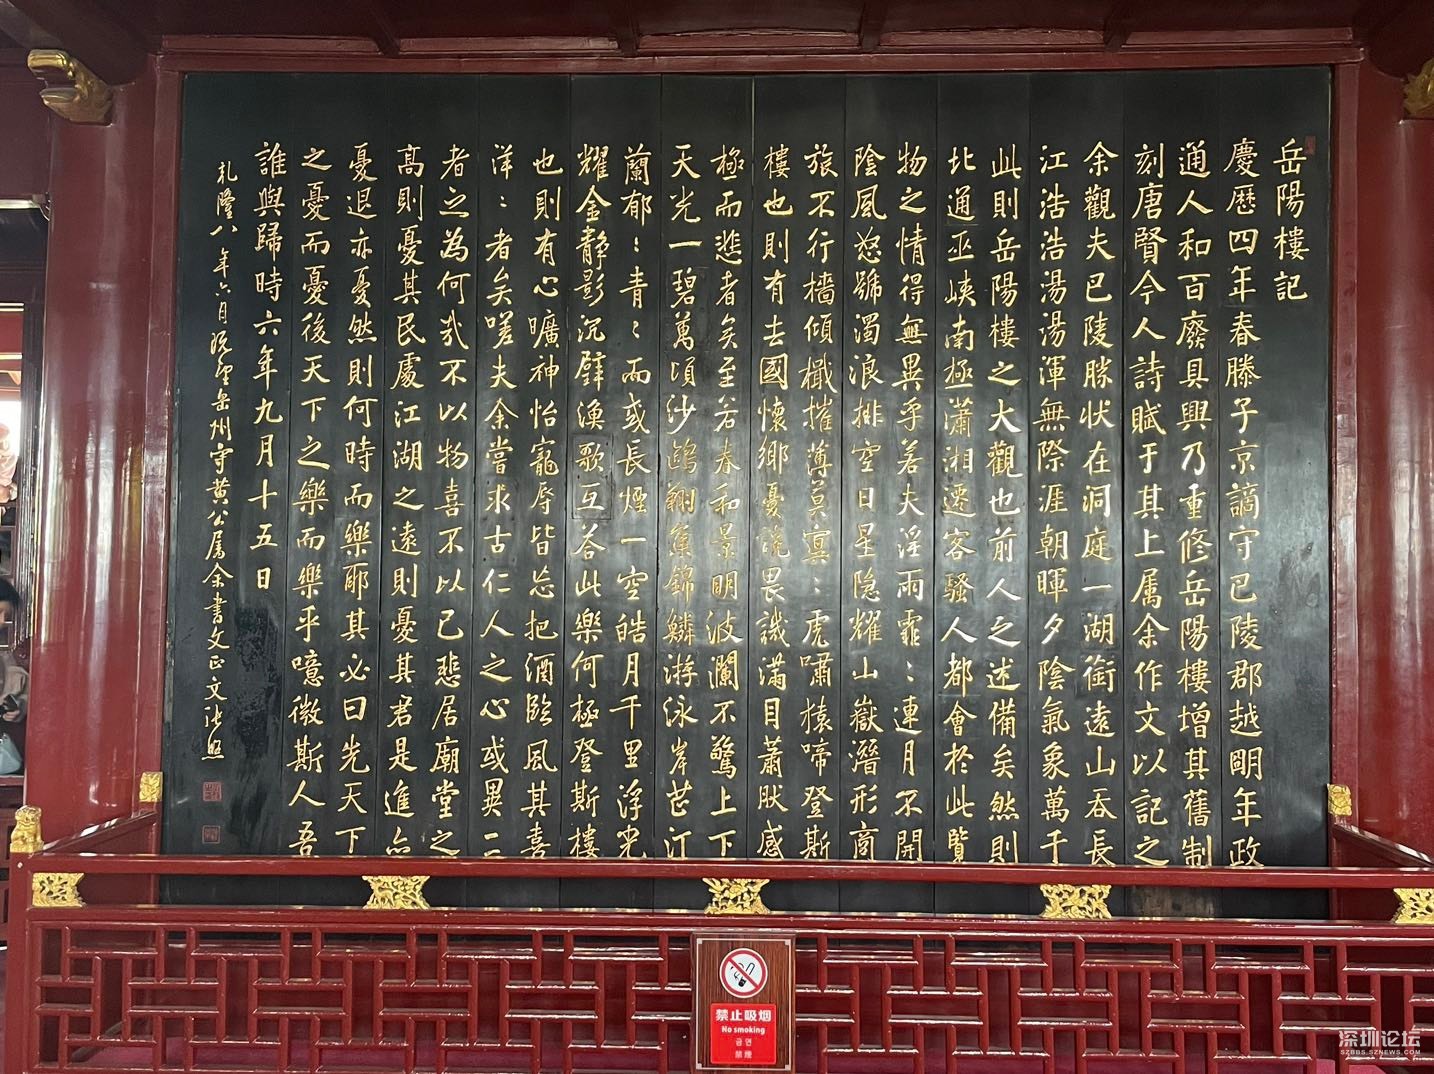 岳陽樓記
慶歷四年春滕子京謫守巴陵郡越明年政
通人和百廢具興乃重修岳陽樓增其舊制
刻唐賢今人詩賦于其上属余作文以記之
余觀夫巴陵勝状在洞庭一湖銜遠山吞長
江浩浩湯湯渾無際涯朝暉夕陰氣象萬千
此則岳陽樓之大觀也前人之述備矣然則
北通巫峽南極瀟湘遷客騷人都會於此覽
物之情得無異乎若夫淫雨霏〻連月不開
陰風怒號濁浪排空日星隐耀山嶽潛形商
旅不行檣傾檝摧薄莫冥〻虎嘯猿啼登斯
樓也則有去國懷鄉憂讒畏譏满目蕭然感
極而悲者矣至若春和景明波瀾不驚上下
天光一碧萬頃沙鷗翔集錦鱗游泳岸芷汀
蘭郁〻青〻而或長煙一空皓月千里浮光
耀金静影沉璧漁歌互荅此樂何極登斯樓
也則有心曠神怡寵辱皆忘把酒臨風其喜
洋〻者矣嗟夫余嘗求古仁人之心或異二
者之為何哉不以物喜不以己悲居廟堂之
高則憂其民處江湖之遠則憂其君是進亦
憂退亦憂然則何時而樂耶其必曰先天下
之憂而憂後天下之樂而樂乎噫微斯人吾
誰與歸時六年九月十五日
乹隆八年六月岳州守黄公属余書文正文张照
禁止吸烟
No smoking
금연
禁煙
深圳论坛
SZBBS.SZNEWS.COM